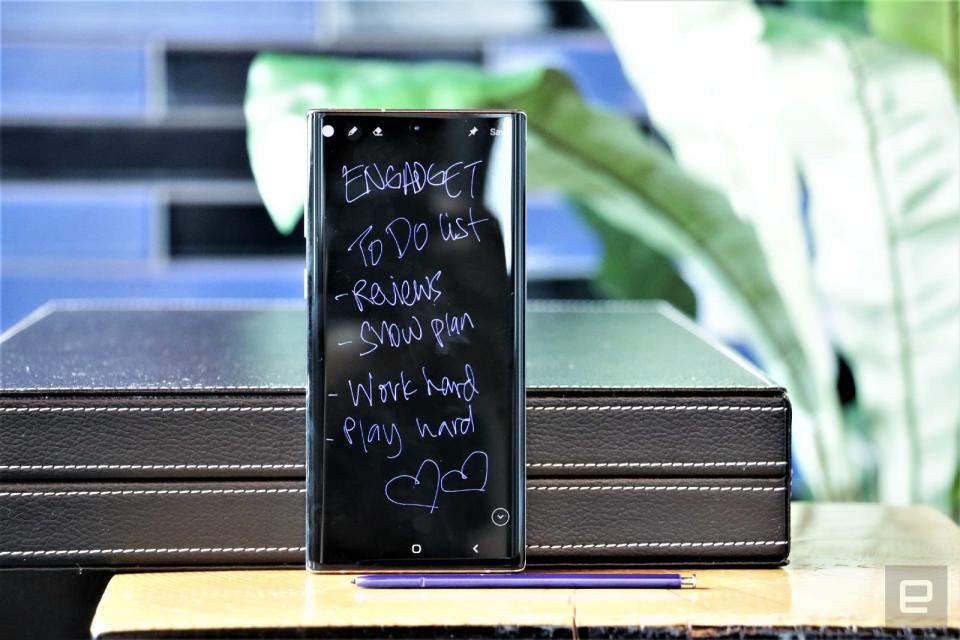 Sa
ENGADGET
To Do list
- Reviews
- Show plan
- Work hard
- Play hard
e